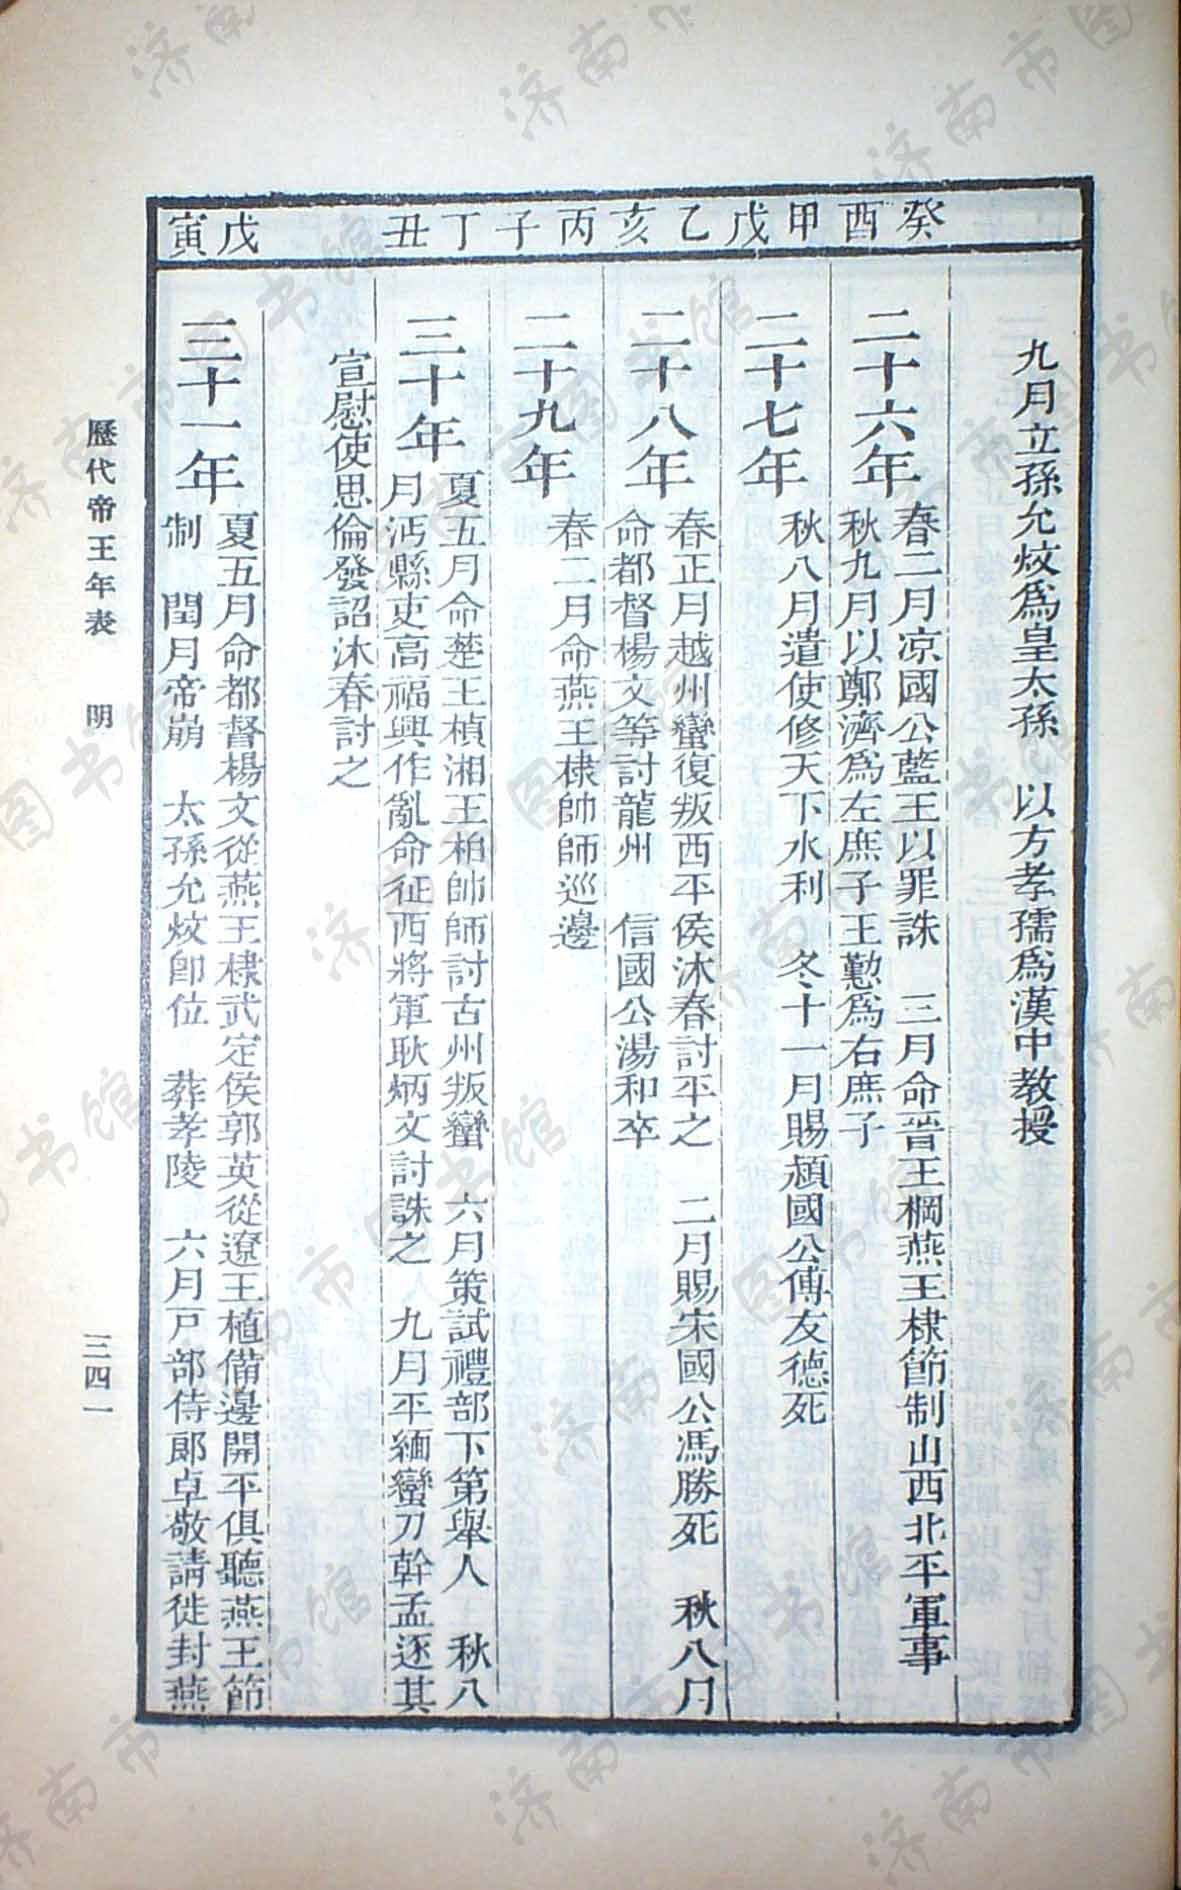 癸酉 甲戊 乙亥 丙子 丁丑 戊寅
九月立孫允炆爲皇太孫　以方孝孺爲漢中教授
二十六年
春二月凉國公藍玉以罪誅　三月命晉王棡燕王棣節制山西北平軍事
秋九月以鄭濟爲左庶子王懃爲右庶子
二十七年
秋八月遣使修天下水利　冬十一月賜潁國公傅友德死
二十八年
春正月越州蠻復叛西平侯沐春討平之　二月賜宋國公馮勝死　秋八月
命都督楊文等討龍州　信國公湯和卒
二十九年
春二月命燕王棣帥師巡邊
三十年
夏五月命楚王楨湘王柏帥師討古州叛蠻　六月策試禮部下第舉人　秋八
月沔縣吏高福興作亂命征西將軍耿炳文討誅之　九月平緬蠻刀幹孟逐其
宣慰使思倫發詔沐春討之
三十一年
夏五月命都督楊文從燕王棣武定侯郭英從遼王植備邊開平俱聽燕王節
制　閏月帝崩　太孫允炆卽位　葬孝陵　六月戸部侍郎卓敬請徙封燕
歷代帝王年表　明
三四一
济南市图书馆